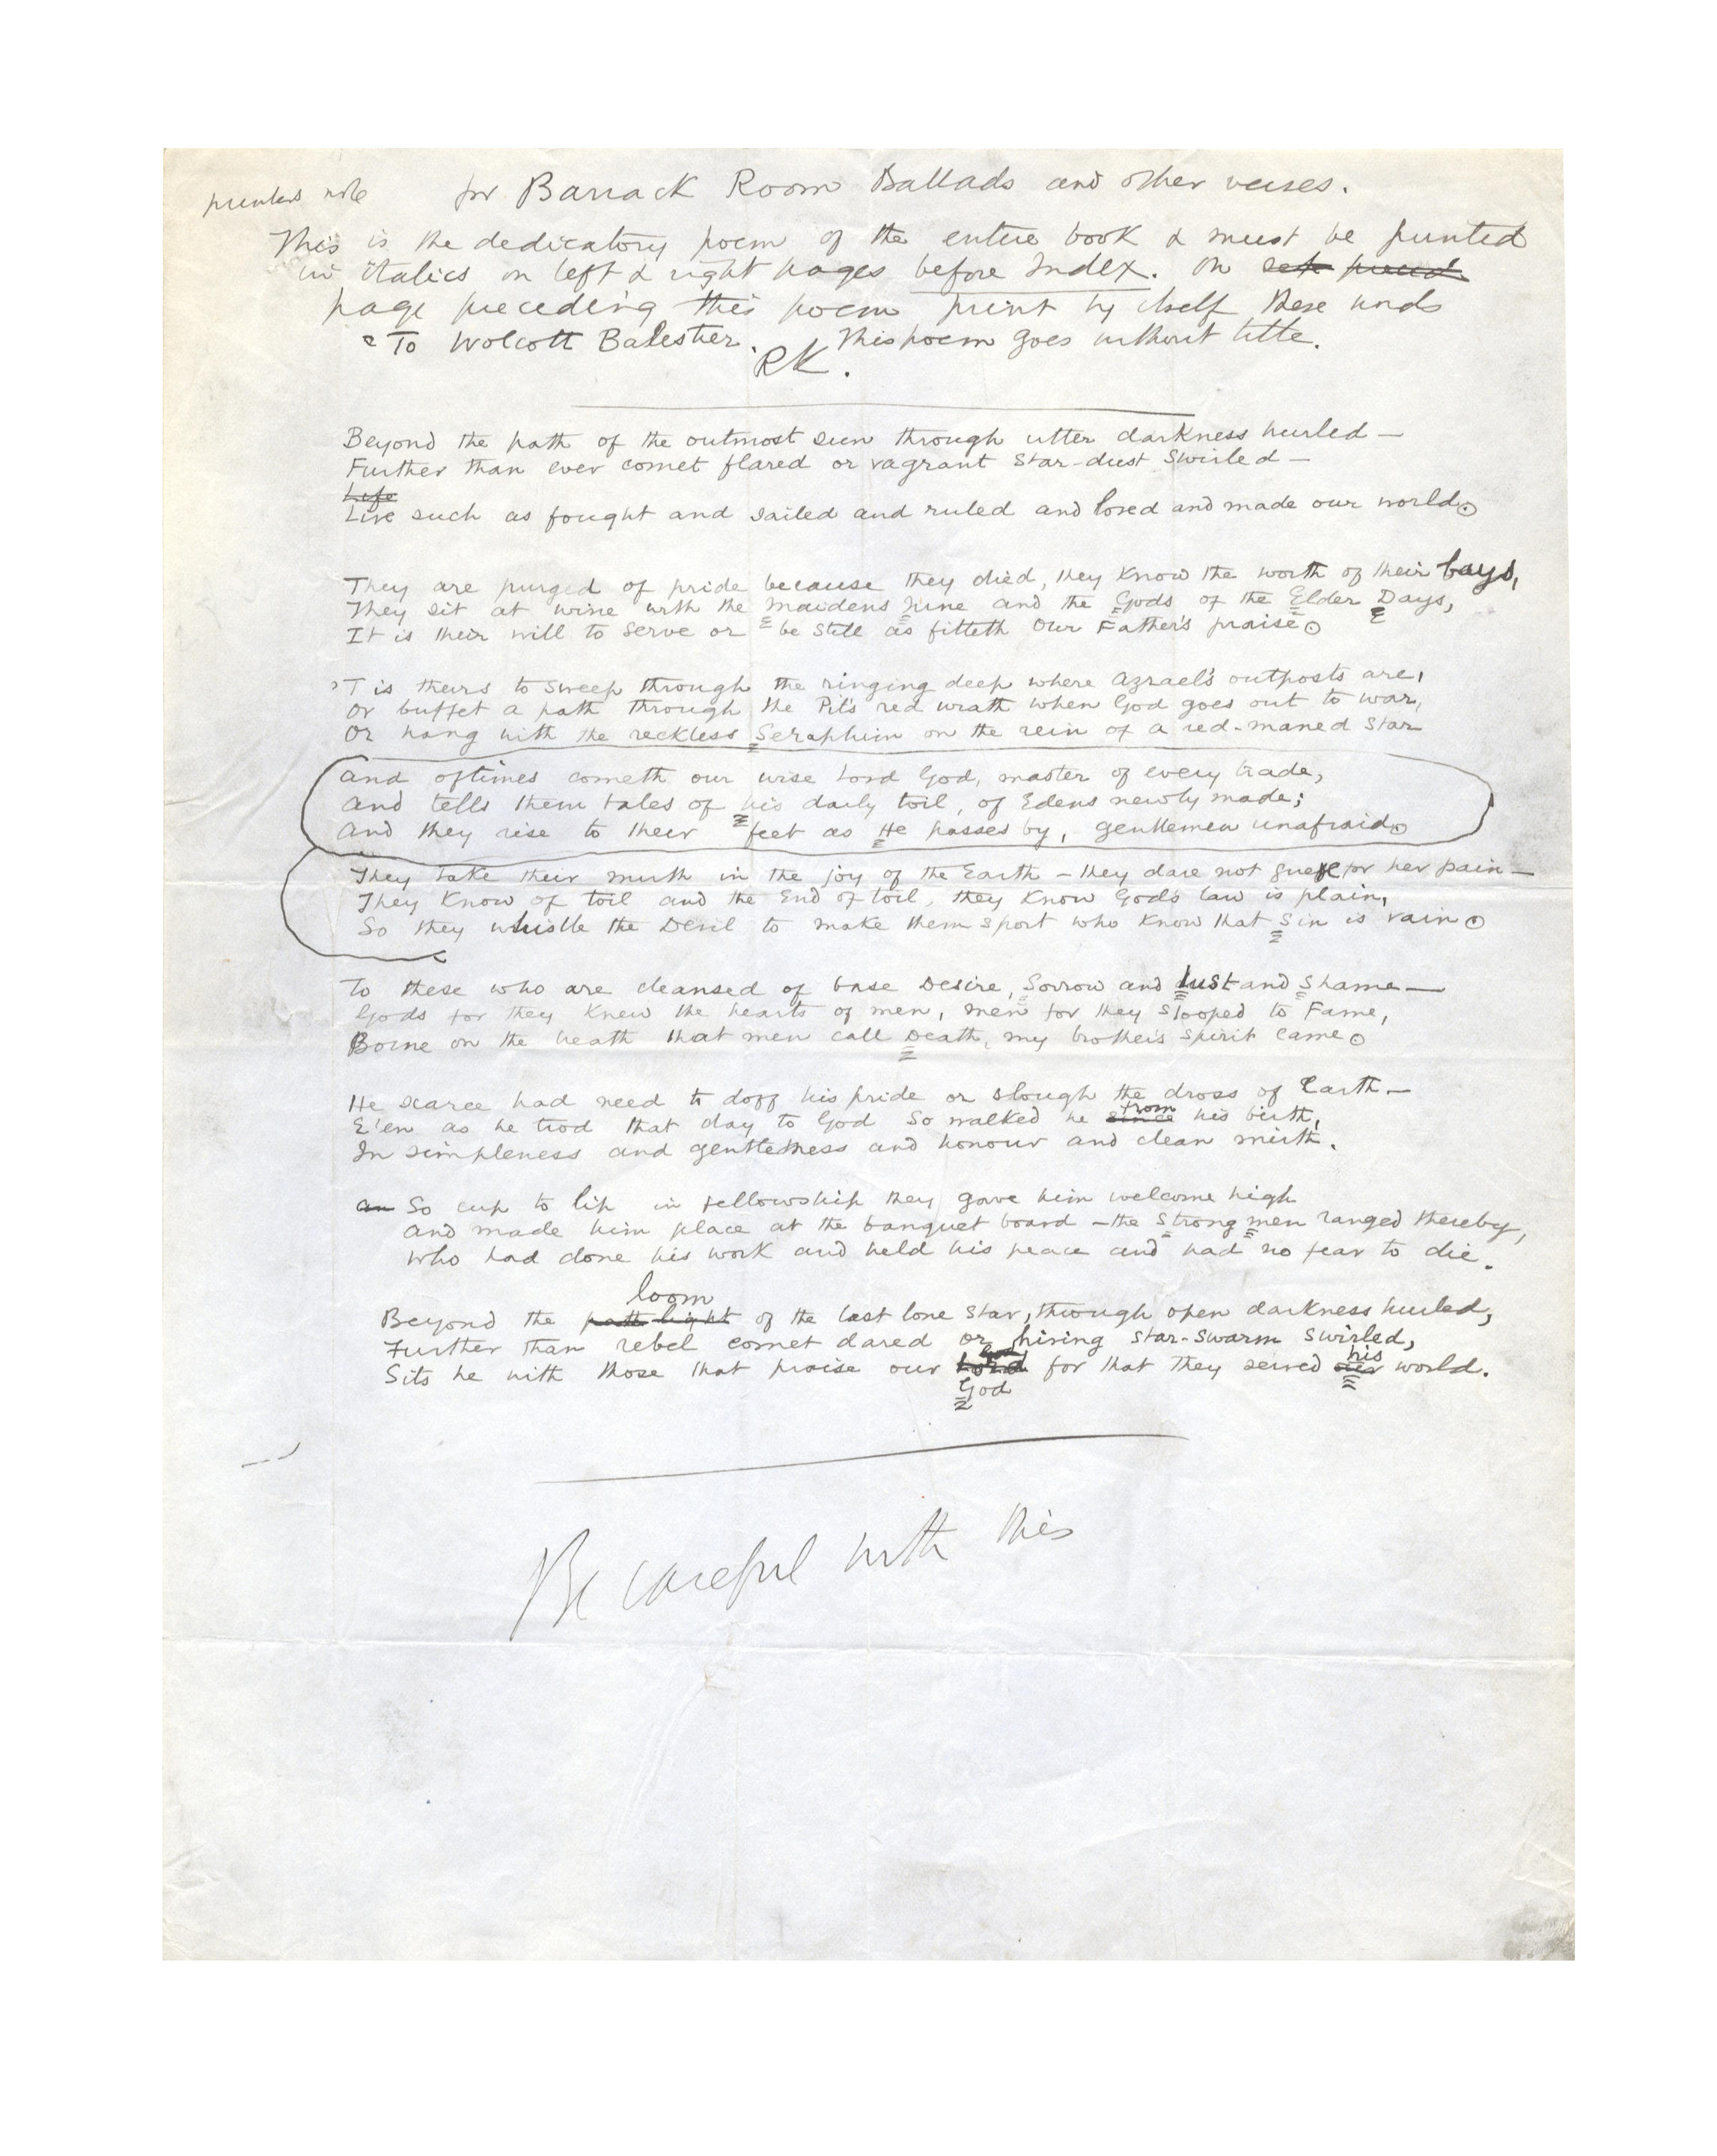 printers note for Barrack Room Ballads and other verses.
This is the dedicatory poem of the entire book & must be printed
in italics on left & right pages before Index. On
page preceding this poem print by itself these words
"To Wolcott Balestier. This poem goes without title.
RK.
Beyond the path of the outmost sun through utter darkness hurled –
Further than ever comet flared or vagrant star-dust swirled –
Life
Live such as fought and sailed and ruled and loved and made our world.
They are purged of pride because they died, they know the worth of their bays,
They sit at wine with the Maidens Nine and the Gods of the Elder Days,
It is their will to serve or be still as fitteth our Father's praise.
'Tis theirs to sweep through the ringing deep where Azrael's outposts are,
Or buffet a path through the Pit's red wrath when God goes out to war,
Or hang with the reckless Seraphim on the rein of a red-maned star
And oftimes cometh our wise Lord God, master of every trade,
And tells them tales of his daily toil, of Edens newly made;
And they rise to their feet as He passes by, gentlemen unafraid.
They take their mirth in the joy of the Earth – they dare not grieve for her pain –
They know of toil and the End of toil, they know God's law is plain,
So they whistle the Devil to make them sport who know that Sin is vain.
To these who are cleansed of base Desire, Sorrow and Lust and Shame –
Gods for they knew the hearts of men, men for they stooped to Fame,
Borne on the breath that men call Death, my brother's spirit came.
He scarce had need to doff his pride or slough the dross of Earth –
E'en as he trod that day to God so walked he since from his birth,
In simpleness and gentleness and honour and clean mirth.
an So cup to lip in fellowship they gave him welcome high
And made him place at the banquet board – the Strong Men ranged thereby,
Who had done his work and held his peace and had no fear to die.
loom
Beyond the path light of the last lone star, through open darkness hurled,
Further than rebel comet dared or hiving star-swarm swirled,
Sits he with those that praise our Lord God for that they served our his world.
God
Be careful with this